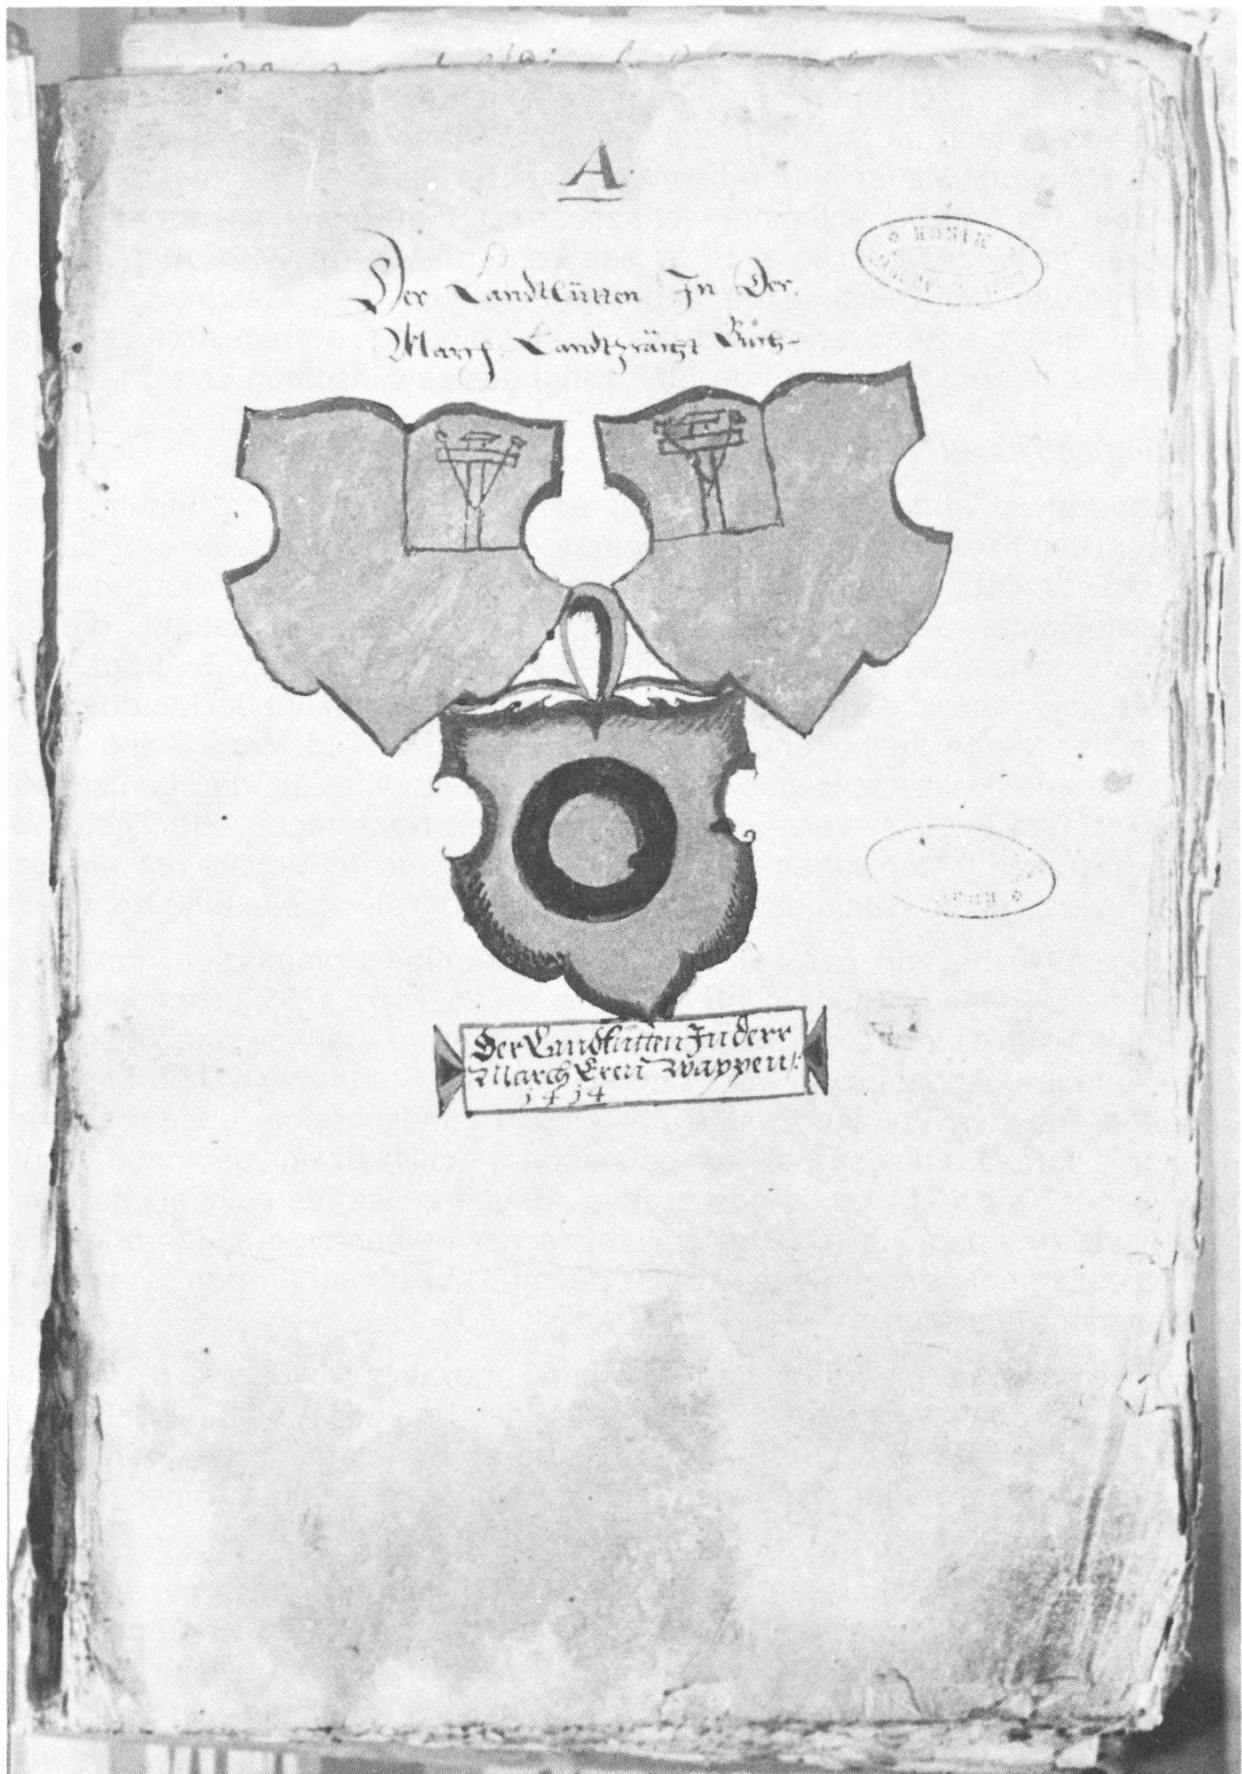 A
Der Landtlütten In Der
March Landtzrächt Buch
Der Landlütten In derr
March Eren wappen
1414